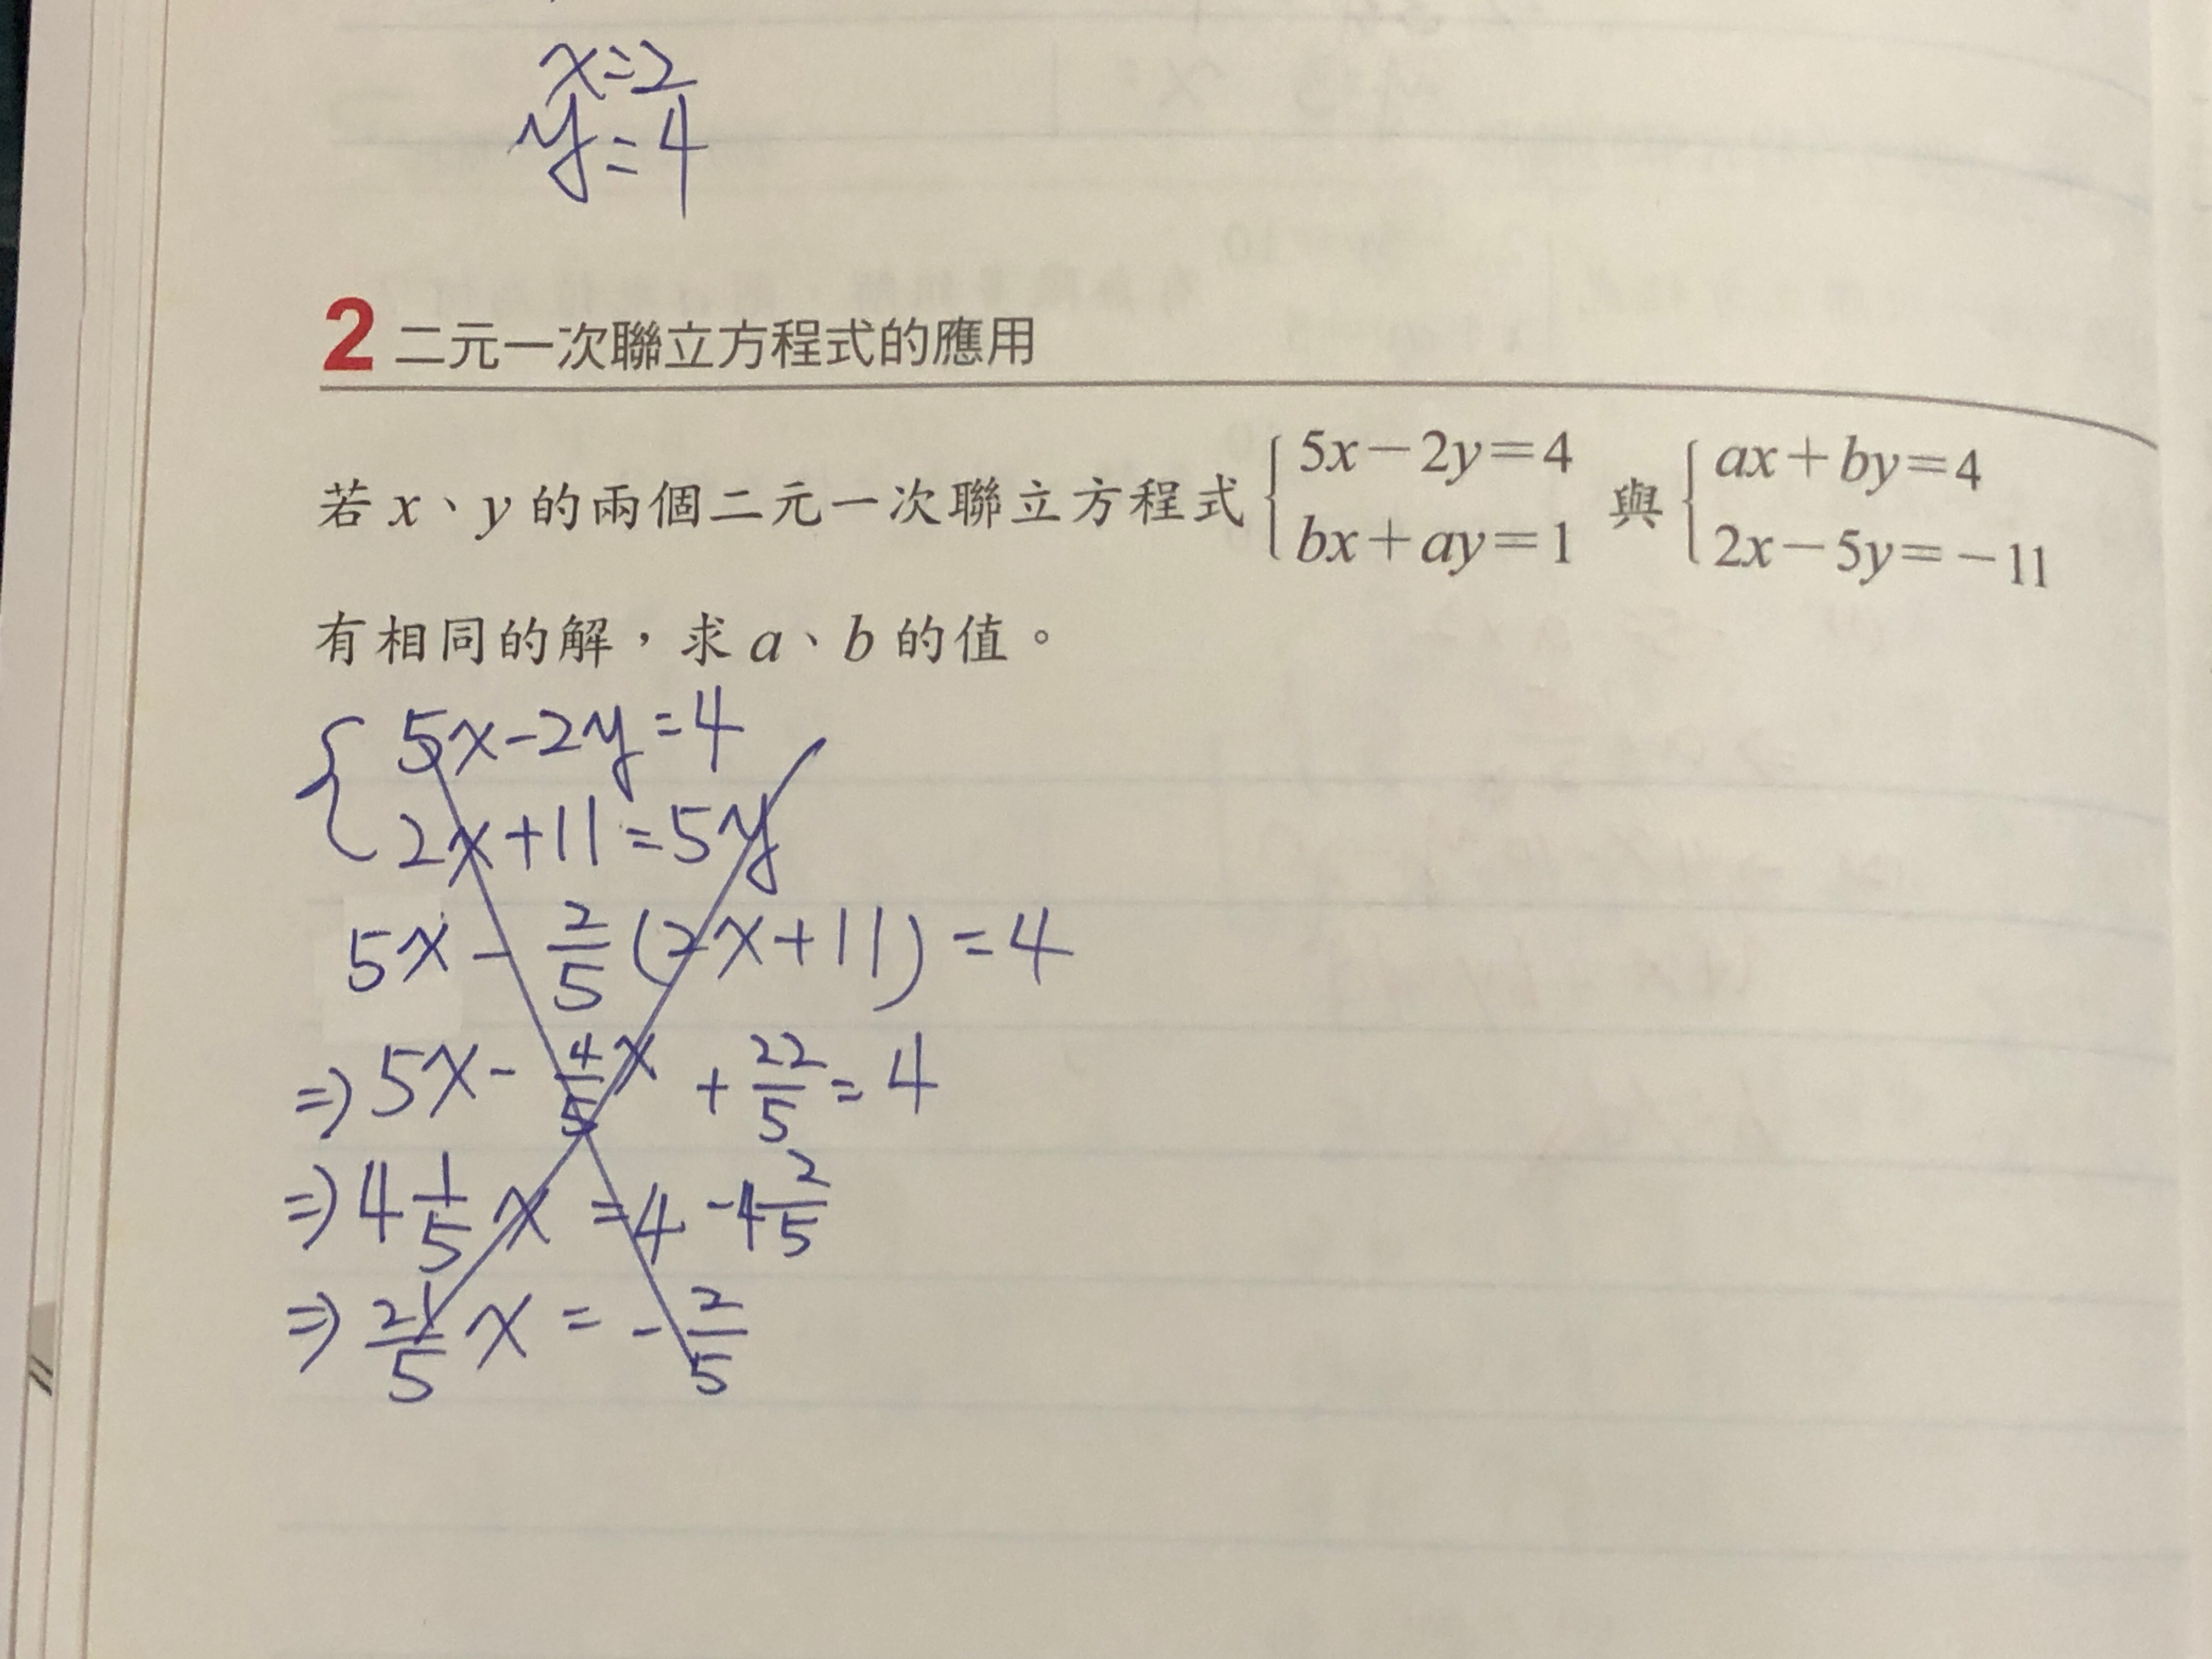 x=2
y=4
2 二元一次聯立方程式的應用
若 x、y 的兩個二元一次聯立方程式 { 5x−2y=4 bx+ay=1 與 { ax+by=4 2x−5y=−11
有相同的解，求 a、b 的值。
{ 5x-2y=4
2x+11=5y
5x - 2/5 (2x+11) = 4
⇒ 5x - 4/5 x + 22/5 = 4
⇒ 4 1/5 x = 4 - 4 2/5
⇒ 21/5 x = - 2/5